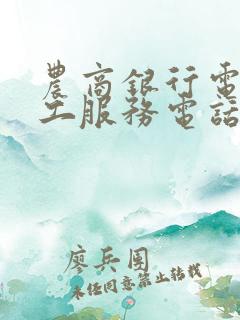 農商銀行電
工服務電話
廖兵團
未經同意禁止轉載